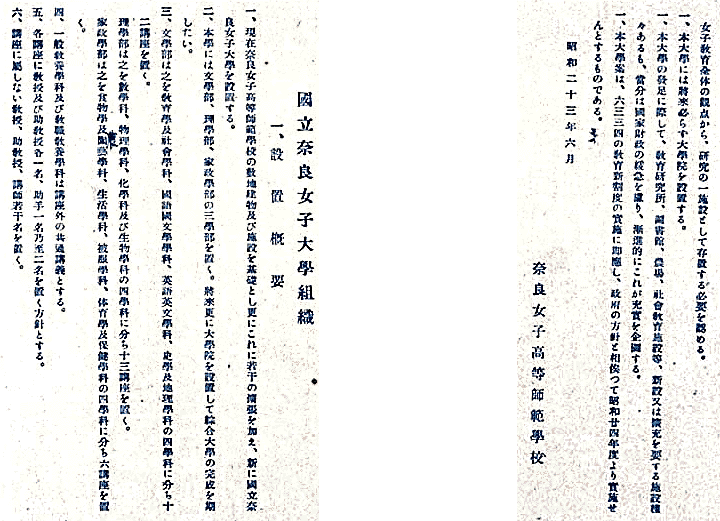 女子教育全体の観点から、研究の一施設として存置する必要を認める。
一、本大學には將來必らず大學院を設置する。
一、本大學の發足に際して、教育研究所、圖書館、農場、社會教育施設等、新設又は擴充を要する施設種
々あるも、當分は國家財政の緩急を慮り、漸進的にこれが充實を企圖する。
一、本大學案は、六三三四の教育新制度の實施に即應し、政府の方針と相俟つて昭和廿四年度より實施せ
んとするものである。
昭和二十三年六月
奈良女子高等師範學校
國立奈良女子大學組織
一、設置概要
一、現在奈良女子高等師範學校の敷地建物及び施設を基礎とし更にこれに若干の擴張を加え、新に國立奈
良女子大學を設置する。
二、本學には文學部、理學部、家政學部の三學部を置く。將來更に大學院を設置して綜合大學の完成を期
したい。
三、文學部は之を教育學及社會學科、國語國文學學科、英語英文學科、史學及地理學科の四學科に分ち十
二講座を置く。
理學部は之を數學科、物理學科、化學科及び生物學科の四學科に分ち十三講座を置く。
家政學部は之を食物學及 學科、生活學科、被服學科、体育學及保健學科の四學科に分ち六講座を置
く。
四、一般教養學科及び教職教養學科は講座外の共通講義とする。
五、各講座に教授及び助教授各一名、助手一名乃至二名を置く方針とする。
六、講座に屬しない教授、助教授、講師若干名を置く。